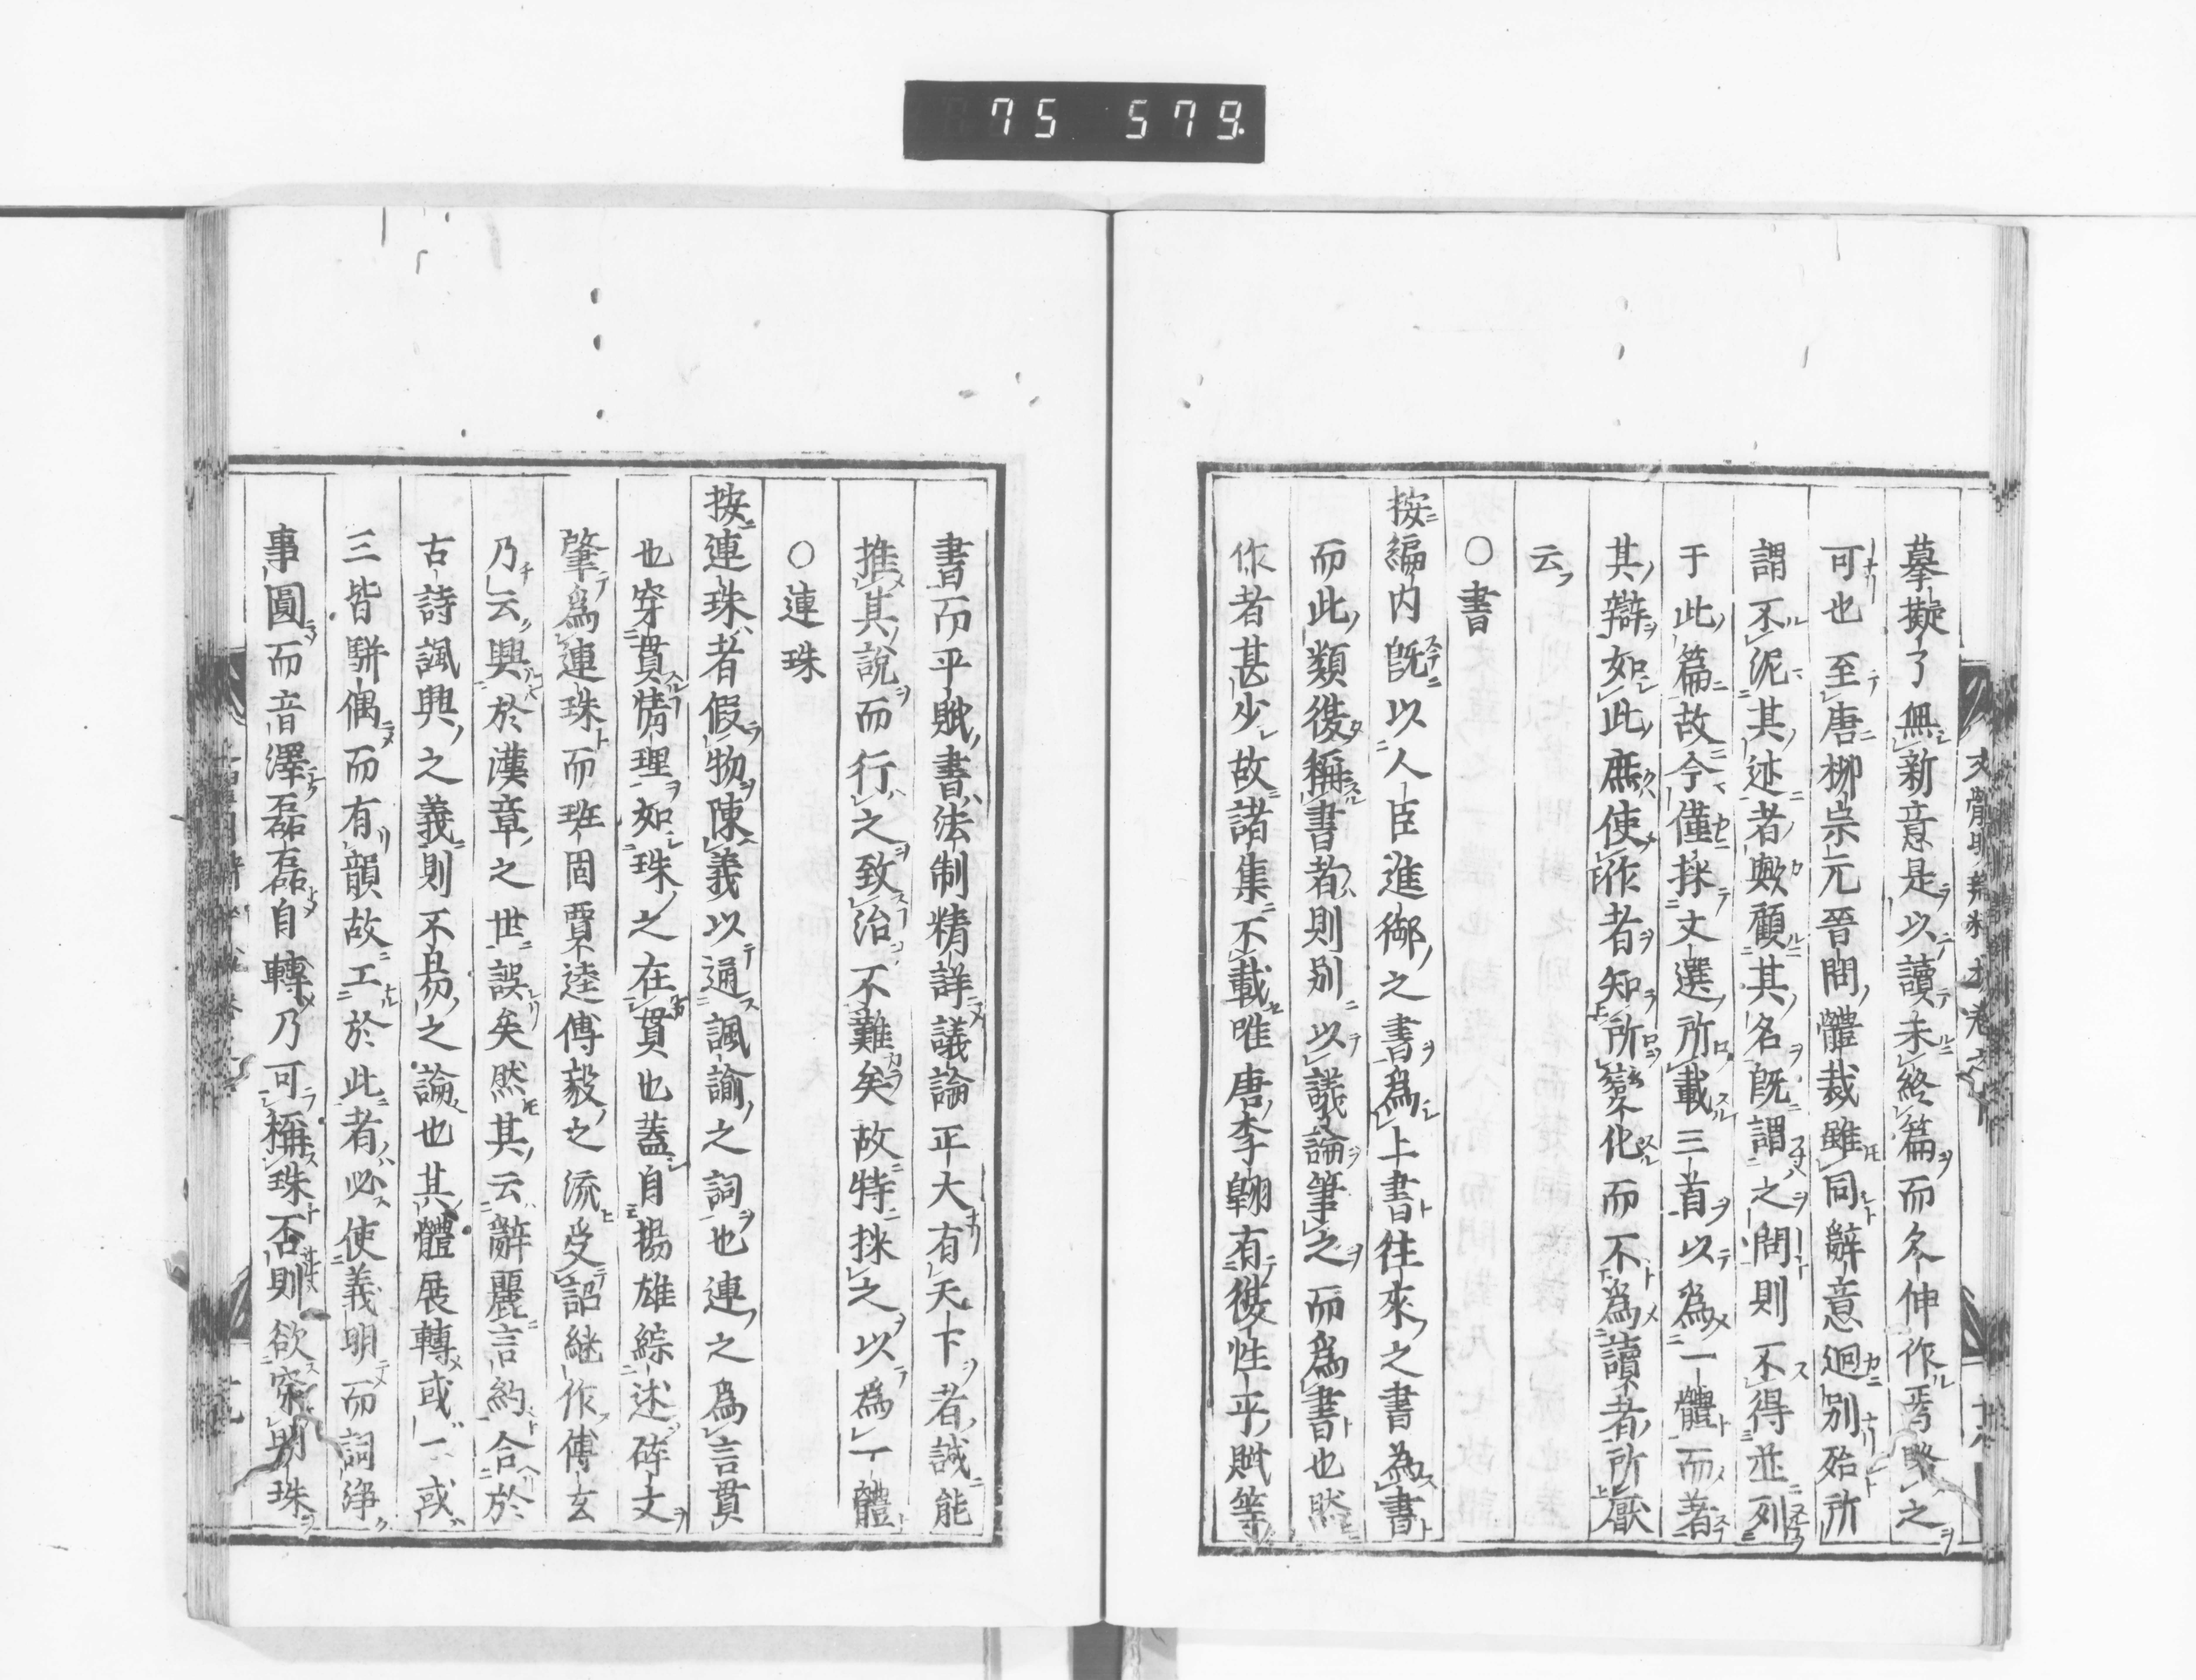 75 579.
摹擬了無新意是以讀未終篇而欠伸作焉略之
可也至唐柳宗元晉問體裁雖同辭意迥別殆所
謂不泥其迹者歟顧其名既謂之問則不得並列
于此篇故今僅採文選所載三首以為一體而著
其辯如此庶使作者知所變化而不為讀者所厭
云
○書
按編内既以人臣進御之書為上書往來之書為書
而此類復稱書者則別以議論筆之而為書也然
作者甚少故諸集不載唯唐李翺有復性平賦等
書而平賦書法制精詳議論正大有天下者誠能
推其說而行之致治不難矣故特採之以為一體
○連珠
按連珠者假物陳義以通諷諭之詞也連之為言貫
也穿貫情理如珠之在貫也蓋自揚雄綜述碎文
肇為連珠而班固賈逵傅毅之流受詔継作傅玄
乃云興於漢章之世誤矣然其云辭麗言約合於
古詩諷興之義則不易之論也其體展轉或一或
三皆駢偶而有韻故工於此者必使義明而詞淨
事圓而音澤磊磊自轉乃可稱珠否則欲穿明珠